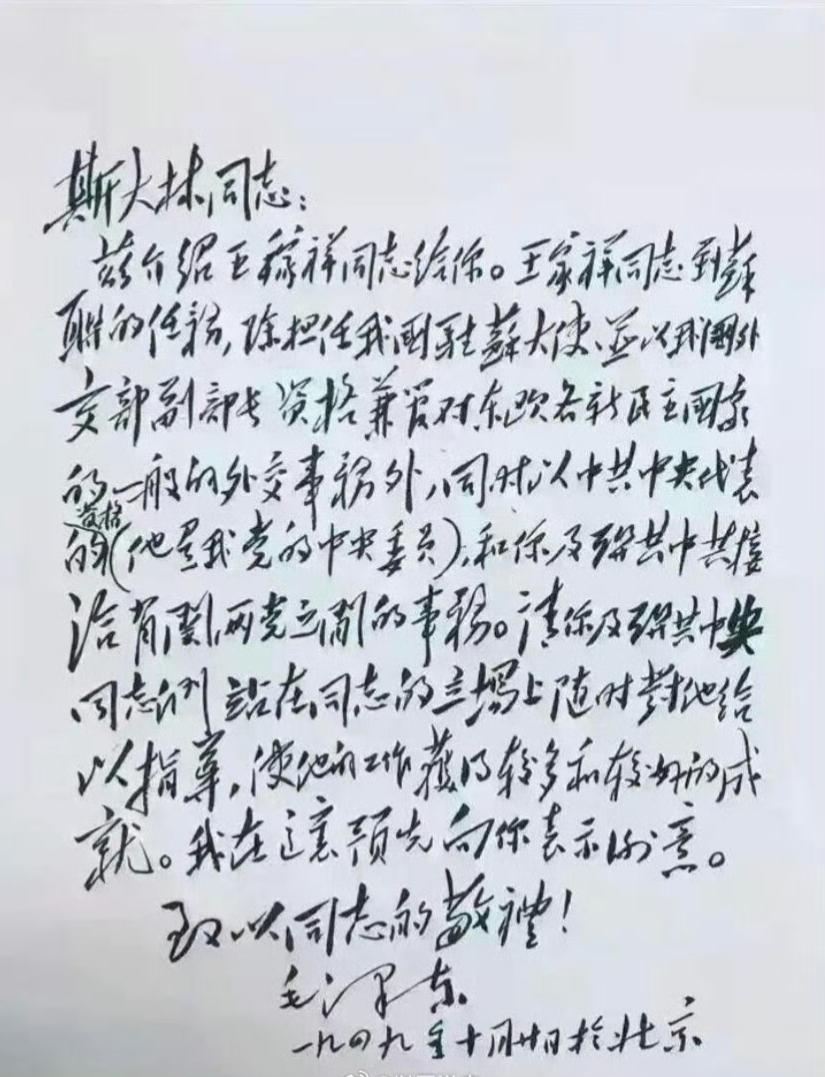 斯大林同志：
兹介绍王稼祥同志给你。王家祥同志到蘇
联的任務，除担任我國駐蘇大使、並以我國外
交部副部长资格兼管对东欧各新民主國家
的一般的外交事務外，同时以中共中央代表
资格
的（他是我党的中央委員），和你及聯共中共接
洽有関两党之间的事務。请你及聯共中央
同志们站在同志的立場上随时對他给
以指導，使他的工作獲得较多和较好的成
就。我在這裏预先向你表示谢意。
致以同志的敬禮！
毛泽东
一九四九年十月廿日於北京